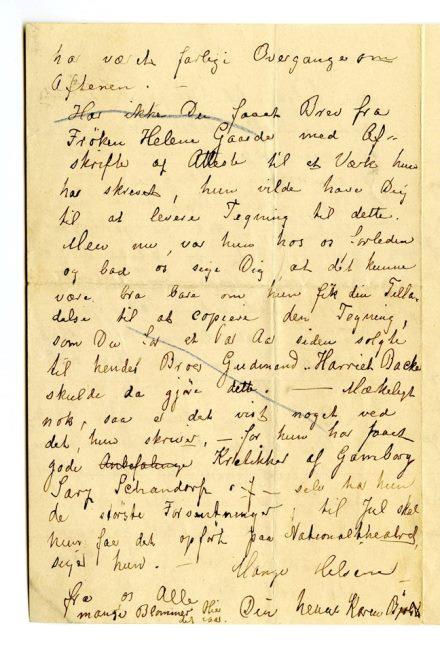 har været farlige Overgange om
Aftenen. —
Har ikke Du faaet Brev fra
Frøken Helene Gaarde med Af-
skrifte af Atteste til et Værk hun
har skrevet, hun vilde have Dig
til at levere Tegning til dette.
Men nu var hun hos os forleden
og bad os sige Dig, at det kunne
være bra bare om hun fik din Tilla-
delse til at copiere den Tegning,
som Du for et Par Aar siden solgte
til hendes Broer Gudmund. Harriet Backer
skulde da gjøre dette. — Mækeligt
nok, saa er dat vist noget ved
det, hun skriver, — for hun har faaet
gode Anbefalinge Kritikker af Gamborg
Lary Schandorp
selv har hun
de største Forventninger, til Jul skal
hun faa det opført paa Nationaltheatret,
siger hun. — Mange Hilsen
fra os Alle
mange Blommer det Din henne Karen